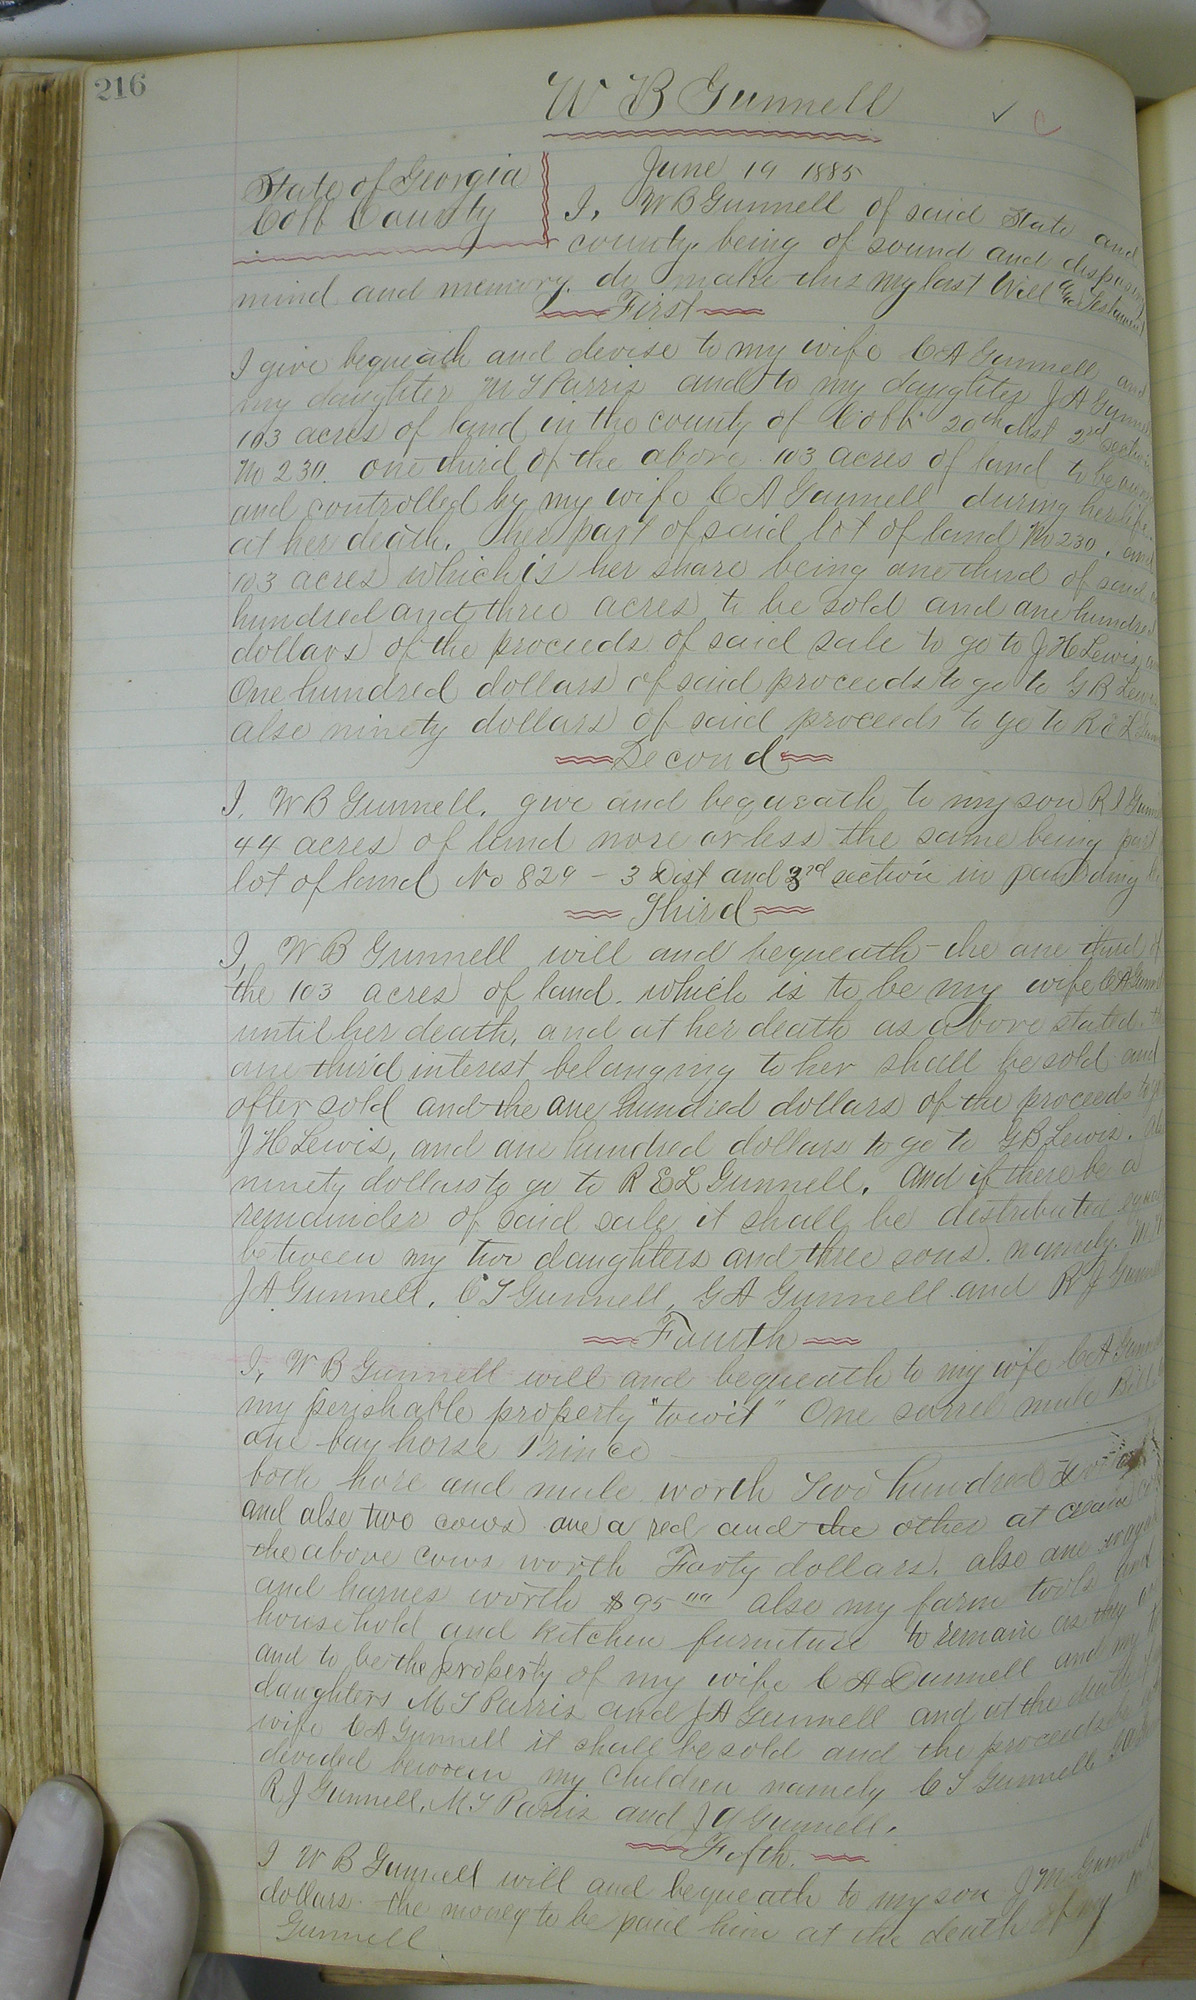 216
W B Gunnell
✓ C
State of Georgia
Cobb County
June 19 1885
I, W B Gunnell of said State and
county, being of sound and disposing
mind and memory, do make this my last Will and Testament
First
I give bequeath and devise to my wife C A Gunnell and
my daughter M T Parris and to my daughter J A Gunnell
103 acres of land in the county of Cobb 20th dist 2nd section
No 230. one third of the above 103 acres of land to be
and controlled by my wife C A Gunnell during her life
at her death, her part of said lot of land No 230, and
103 acres which is her share being one third of said
hundred and three acres to be sold and one hundred
dollars of the proceeds of said sale to go to J H Lewis,
One hundred dollars of said proceeds to go to G B Lewis
also ninety dollars of said proceeds to go to R E L
Second
I, W B Gunnell, give and bequeath to my son R J
44 acres of land more or less the same being part
lot of land No 829 - 3 Dist and 3rd section in paulding
Third
I, W B Gunnell will and bequeath the one third of
the 103 acres of land. which is to be my wife C A
until her death, and at her death as above stated.
one third interest belonging to her shall be sold and
after sold and the one hundred dollars of the proceeds to go
J H Lewis, and one hundred dollars to go to G B Lewis.
ninety dollars to go to R E L Gunnell. and if there be a
remainder of said sale it shall be distributed
between my two daughters and three sons. namely.
J A Gunnell, C T Gunnell, G A Gunnell and R J Gunnell
Fourth
I, W B Gunnell will and bequeath to my wife C A Gunnell
my perishable property "towit" One sorrel mule
one bay horse Prince
both hore and mule worth Two hundred
and also two cows one a red and the other at
the above cows worth Forty dollars. also one
and harnes worth $95 00 also my farm tools and
household and kitchen furniture to remain as they
and to be the property of my wife C A Gunnell and my
daughters M T Parris and J A Gunnell and at the death
wife C A Gunnell it shall be sold and the proceeds
devided between my Children namely C T Gunnell
R J Gunnell, M T Parris and J A Gunnell.
Fifth.
I W B Gunnell will and bequeath to my son J M Gunnell
dollars. the money to be paid him at the death of my
Gunnell.